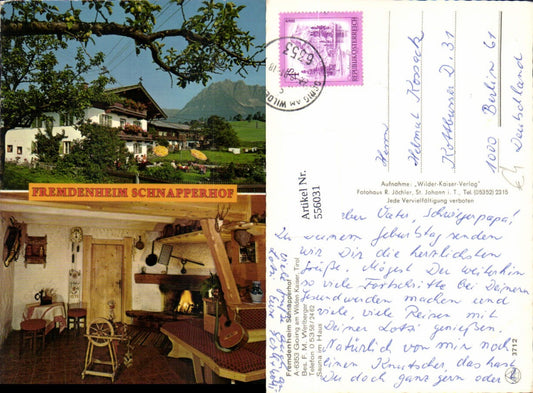 FREMDENHEIM SCHNAPPERHOF
REPUBLIK ÖSTERREICH
6353
GOING AM WILDEN
Herrn
Helmut Kossack
Kottbusser D. 31
1000 Berlin 61
Deutschland
Aufnahme: „Wilder-Kaiser-Verlag"
Fotohaus R. Jöchler, St. Johann i. T., Tel. (05352) 2315
Jede Vervielfältigung verboten
Artikel Nr.
556031
Fremdenheim Schnapperhof
A-6353 Going am Wilden Kaiser, Tirol
Bes. F. M.
Telefon 0 53 58/24 62
Sauna im Haus
3712
Lieber Vater, Schwiegerpapa!
Zu Deinem Geburtstag senden
wir Dir die herzlichsten
Grüße. Mögest Du weiterhin
so viele Fortschritte bei Deinem
Gesundwerden machen und
viele, viele Reisen mit
Deiner genießen.
Natürlich von mir noch
einen Knutscher, das hast
Du doch ganz gern oder